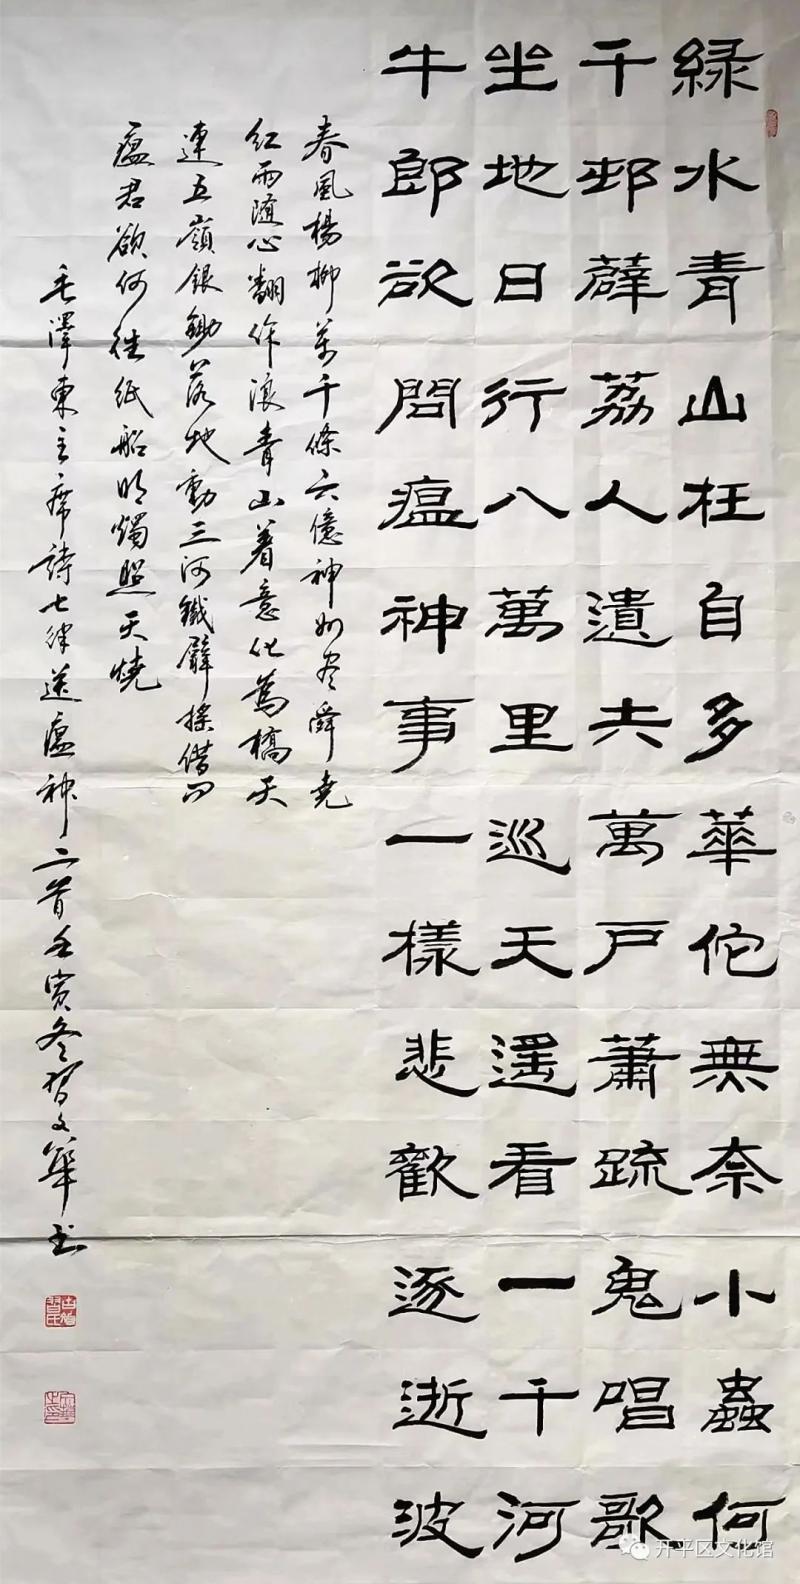 緑水青山枉自多華佗無奈小蟲何
千邨薜荔人遺矢萬戶蕭疏鬼唱歌
坐地日行八萬里巡天遥看一千河
牛郎欲問瘟神事一樣悲歡逐逝波
春風楊柳萬千條六億神州尽舜堯
紅雨随心翻作浪青山着意化為橋天
連五嶺銀鋤落地動三河鐵臂摇借问
瘟君欲何往紙船明燭照天燒
毛澤東主席詩七律送瘟神二首壬寅冬習文華书
开平区文化馆